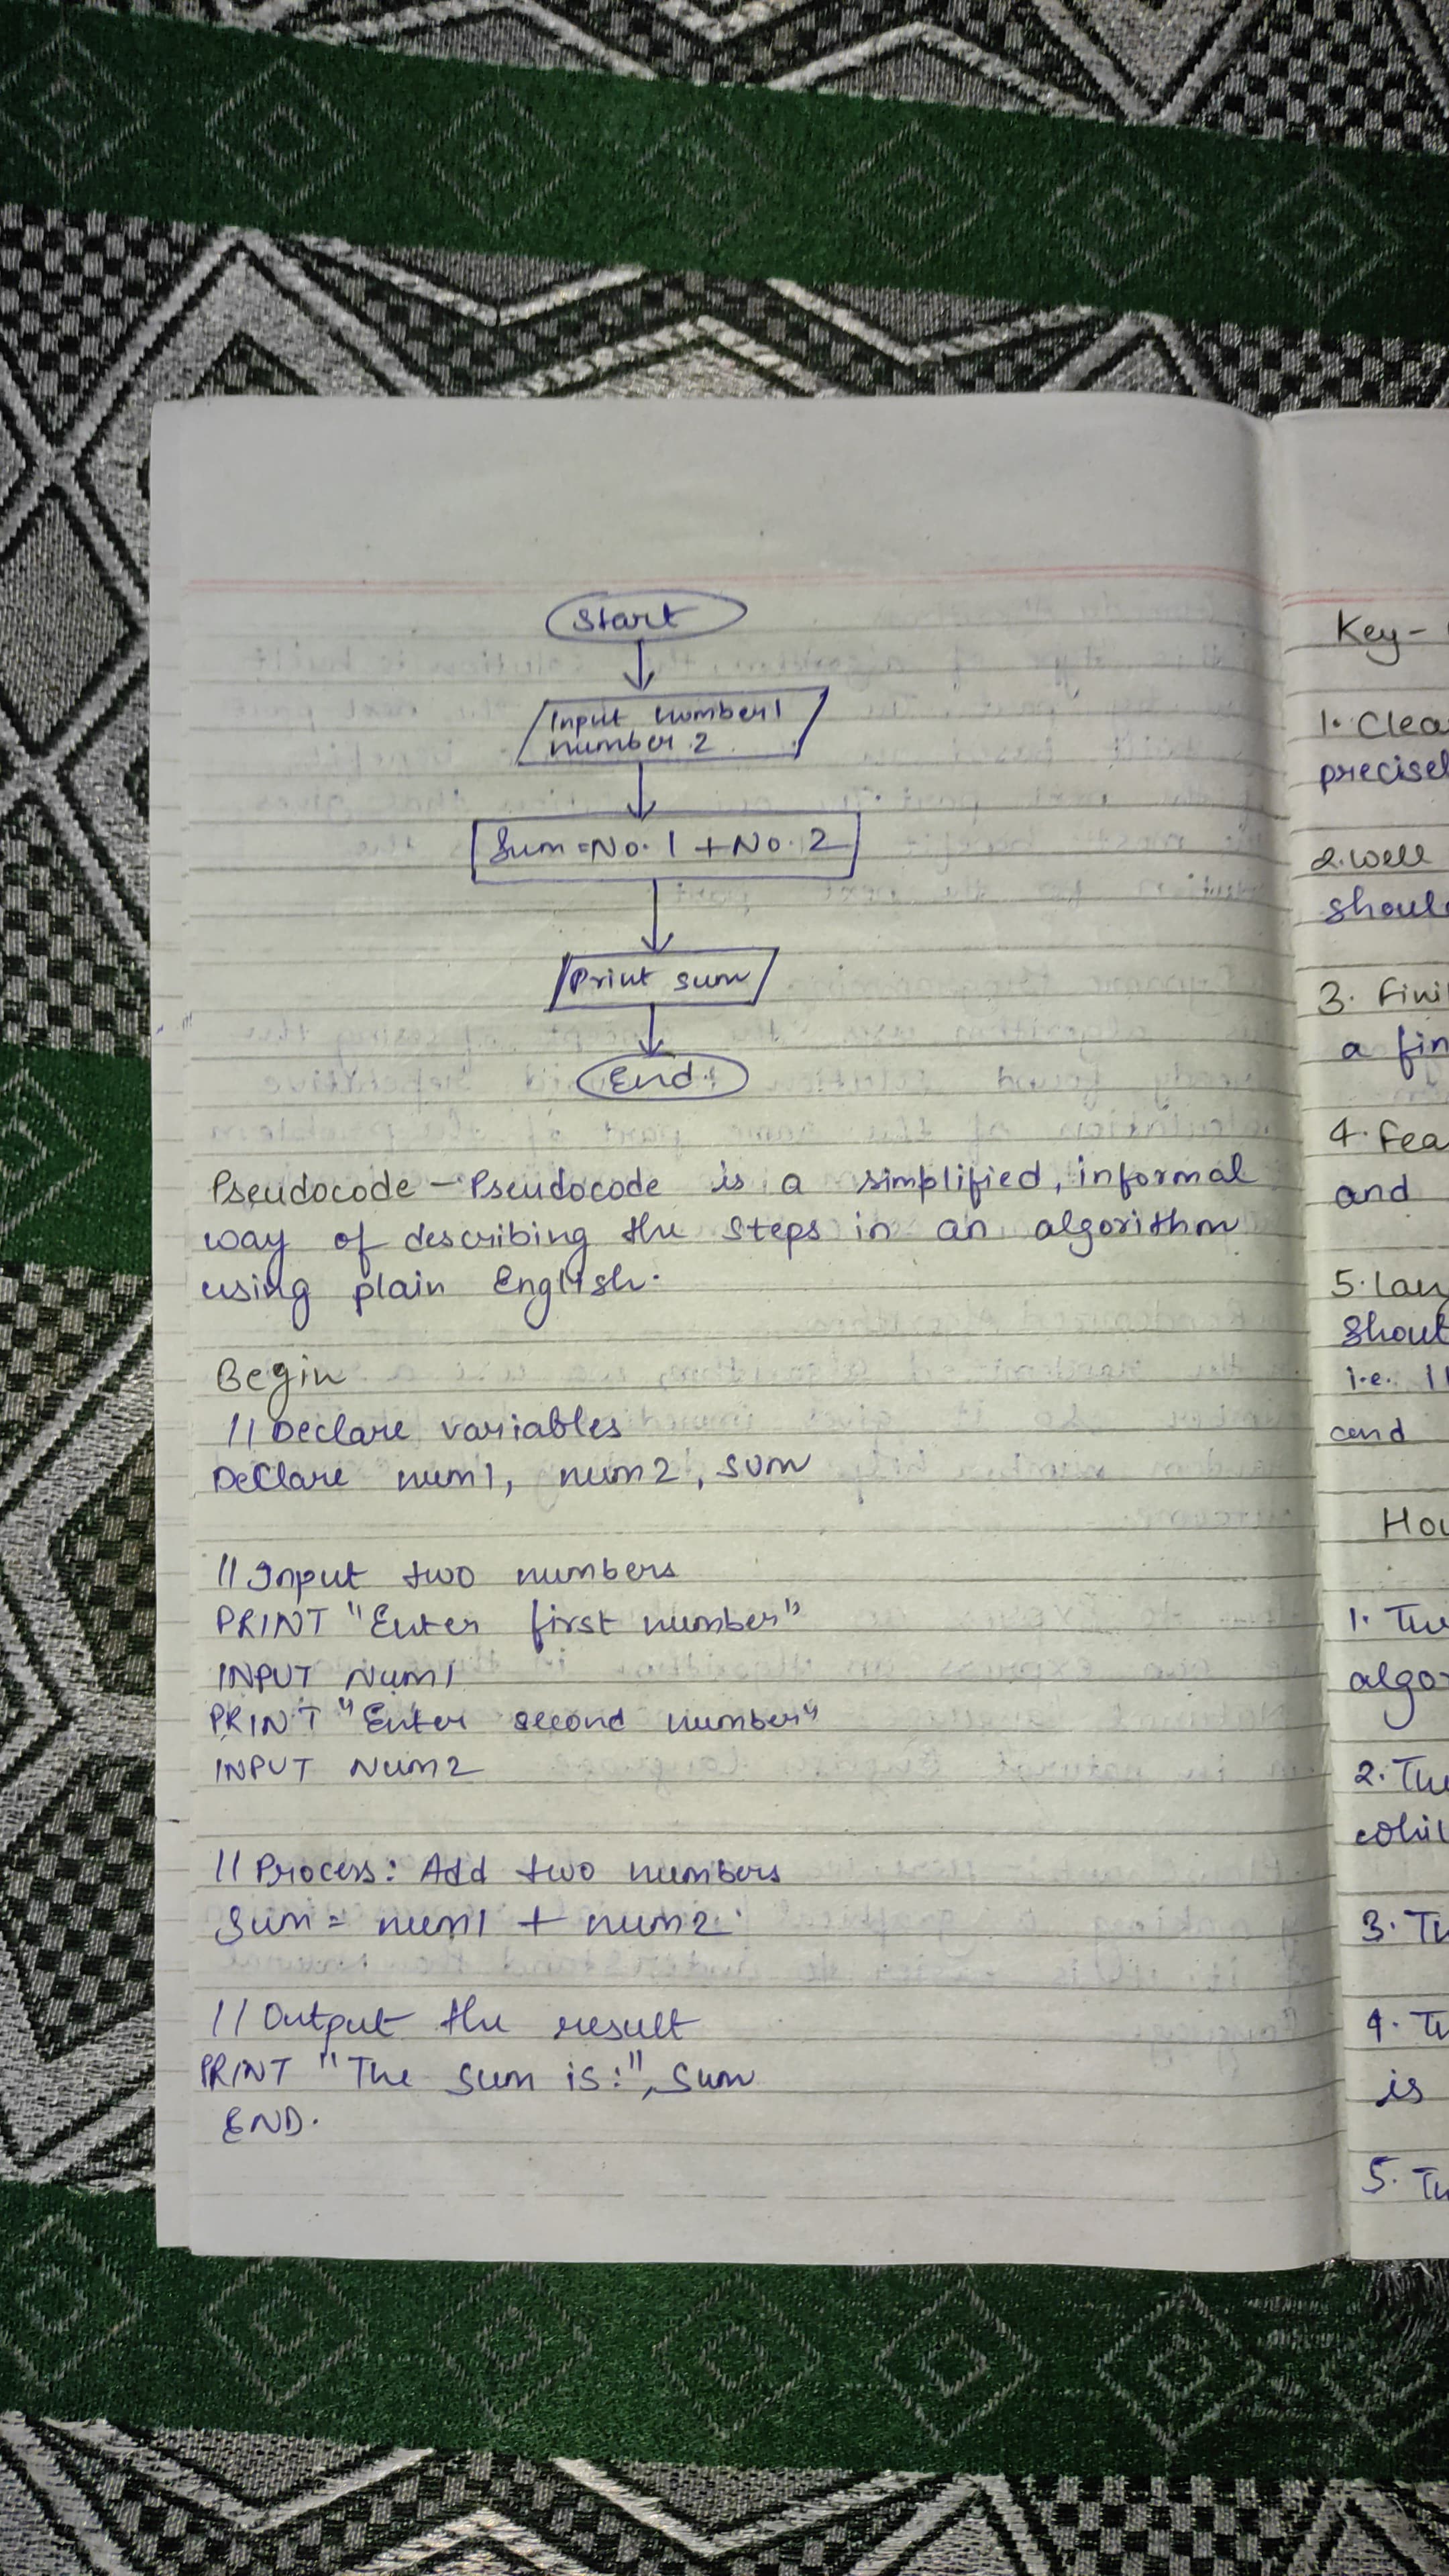 Start
Input number1
number 2
Sum=No. 1 + No. 2
Print sum
End.
Pseudocode - Pseudocode is a simplified, informal
way of describing the steps in an algorithm
using plain English.
Begin
// Declare variables
Declare num1, num2, sum
// Input two numbers
PRINT "Enter first number"
INPUT Num1
PRINT "Enter second number"
INPUT Num2
// Process: Add two numbers
Sum = num1 + num2
// Output the result
PRINT "The sum is:", Sum
END.
Key-
1. Clea
precisel
2. well
shoul
3. Fini
a fin
4. Fea
and
5. Lan
Shoul
i.e.
and
How
1. The
algor
2. The
3. Th
4. Th
is
5. Th